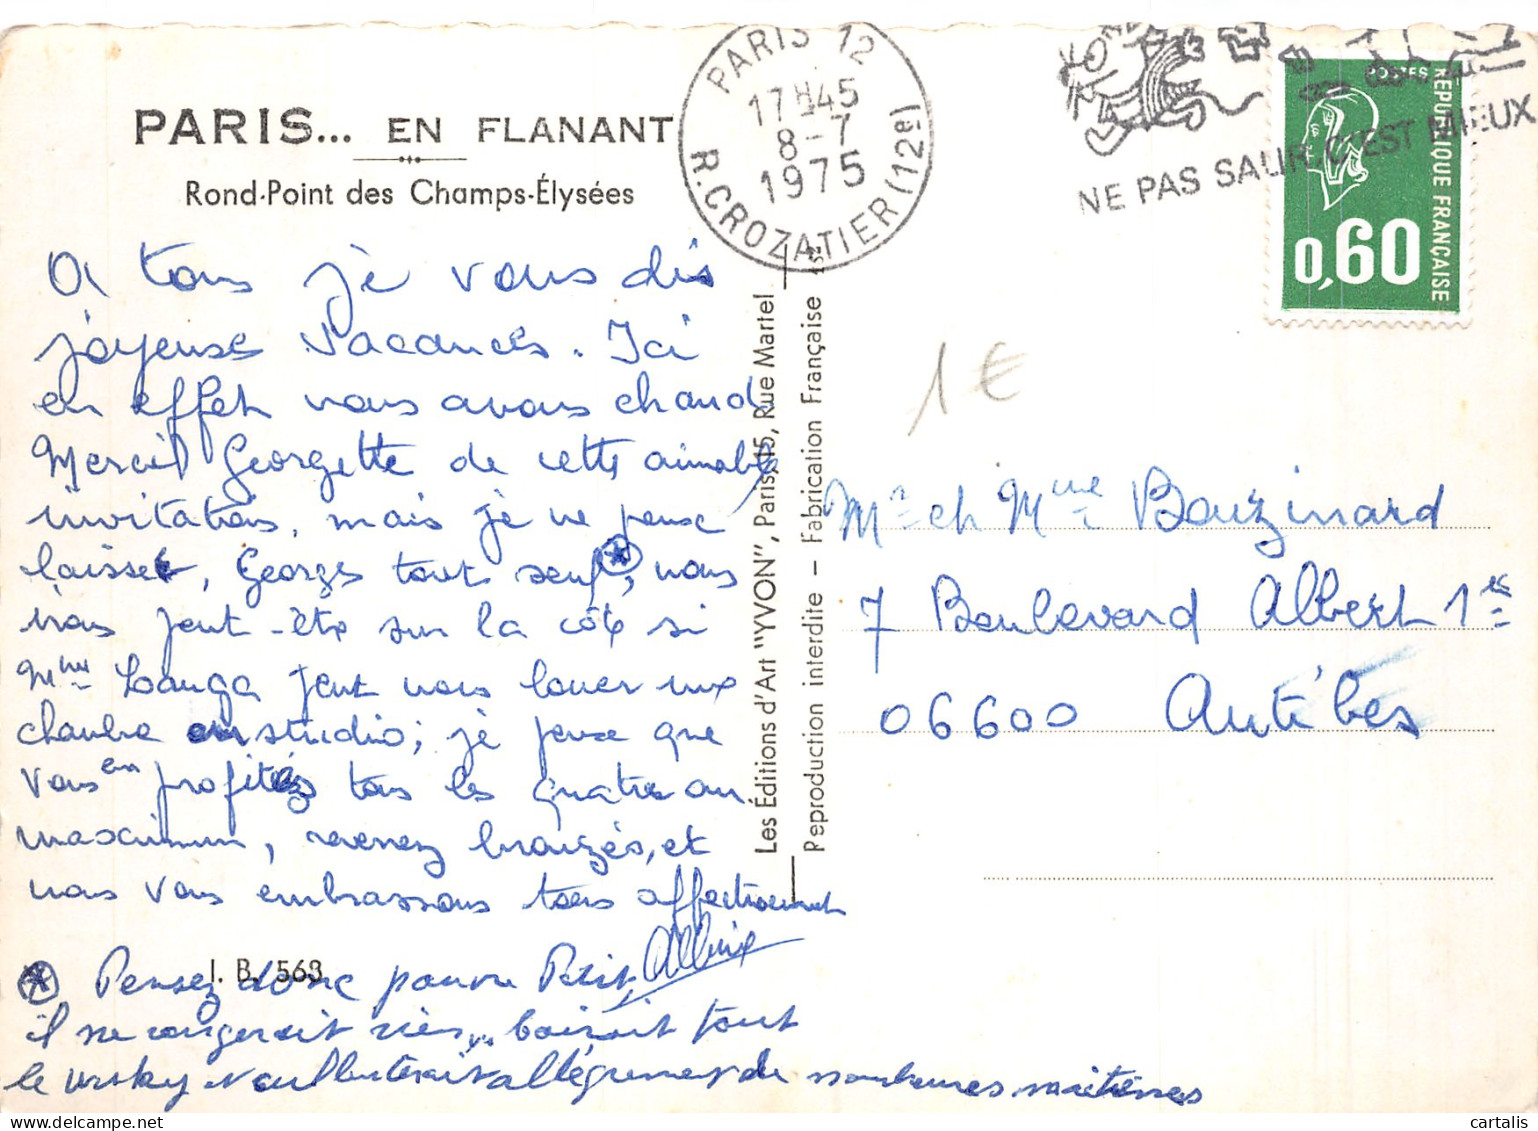 PARIS... EN FLANANT
Rond-Point des Champs-Élysées
PARIS 12
17H45
8-7
1975
R.CROZATIER (12e)
NE PAS SALIR, C'EST MIEUX
POSTES
RÉPUBLIQUE FRANÇAISE
0,60
A tous je vous dis
joyeuses vacances. Ici
en effet nous avons chaud
Merci Georgette de cette aimable
invitation, mais je ne peux
laisser, Georges tout seul *, nous
irons peut-être sur la côte si
Mme Langa peut nous louer une
chambre ou studio; je pense que
vous en profitez tous les quatre au
maximum, revenez bronzés, et
nous vous embrassons tous affectueusement
* Pensez donc pauvre Petit,
il ne mangerait rien, boirait tout
le wisky
de nombreuses maitresses
I. B. 563
Les Éditions d'Art "YVON", Paris, 15, Rue Martel
Reproduction interdite — Fabrication Française
1€
Mr et Mme Bouzinard
7 Boulevard Albert 1er
06600 Antibes
cartalis